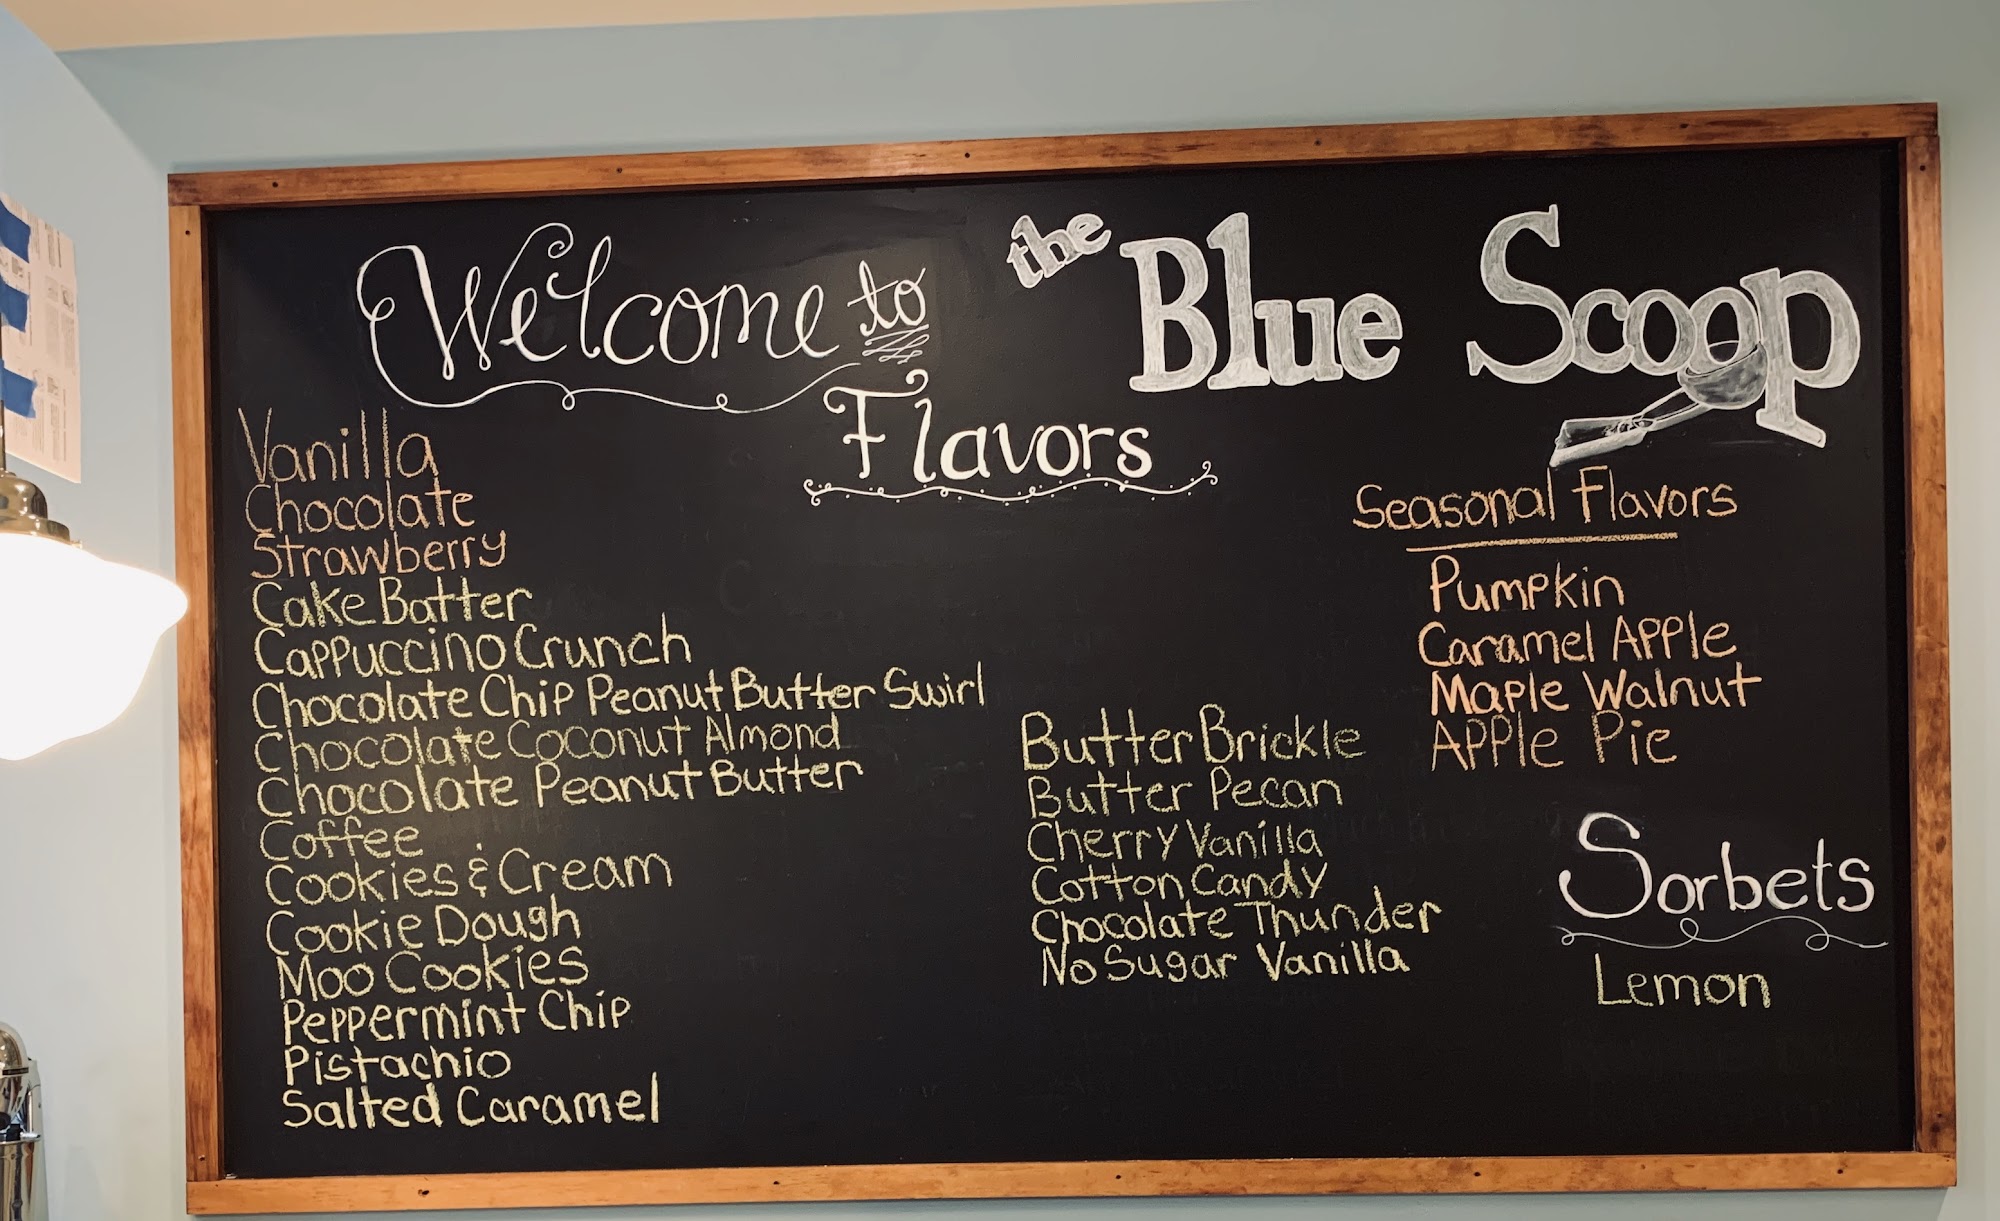 Welcome to
the Blue Scoop
Flavors
Vanilla
Chocolate
Strawberry
Cake Batter
Cappuccino Crunch
Chocolate Chip Peanut Butter Swirl
Chocolate Coconut Almond
Chocolate Peanut Butter
Coffee
Cookies & Cream
Cookie Dough
Moo Cookies
Peppermint Chip
Pistachio
Salted Caramel
Butter Brickle
Butter Pecan
Cherry Vanilla
Cotton Candy
Chocolate Thunder
No Sugar Vanilla
Seasonal Flavors
Pumpkin
Caramel Apple
Maple Walnut
Apple Pie
Sorbets
Lemon